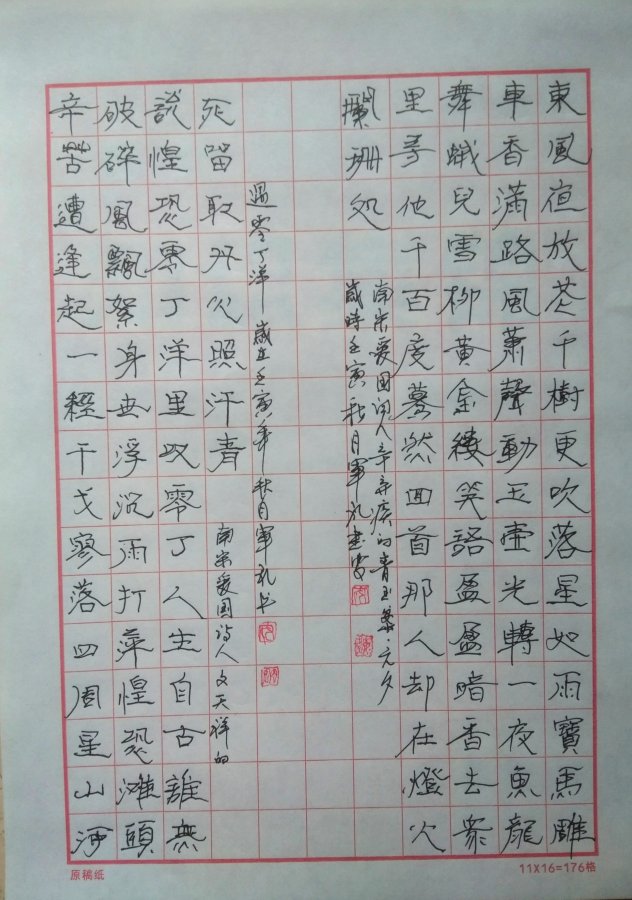 東風夜放花千樹更吹落星如雨寶馬雕
車香滿路風蕭聲動玉壺光轉一夜魚龍
舞蛾兒雪柳黃金縷笑語盈盈暗香去衆
里尋他千百度驀然回首那人却在燈火
攔珊处
南宋爱国词人辛弃疾的青玉案·元夕
歲時壬寅秋月軍礼
辛苦遭逢起一經干戈寥落四周星山河
破碎風飄絮身世浮沉雨打萍惶恐灘頭
説惶恐零丁洋里叹零丁人生自古誰無
死留取丹心照汗青
南宋爱国诗人文天祥的
過零丁洋 歲在壬寅年秋月軍礼书
原稿纸
11X16=176格